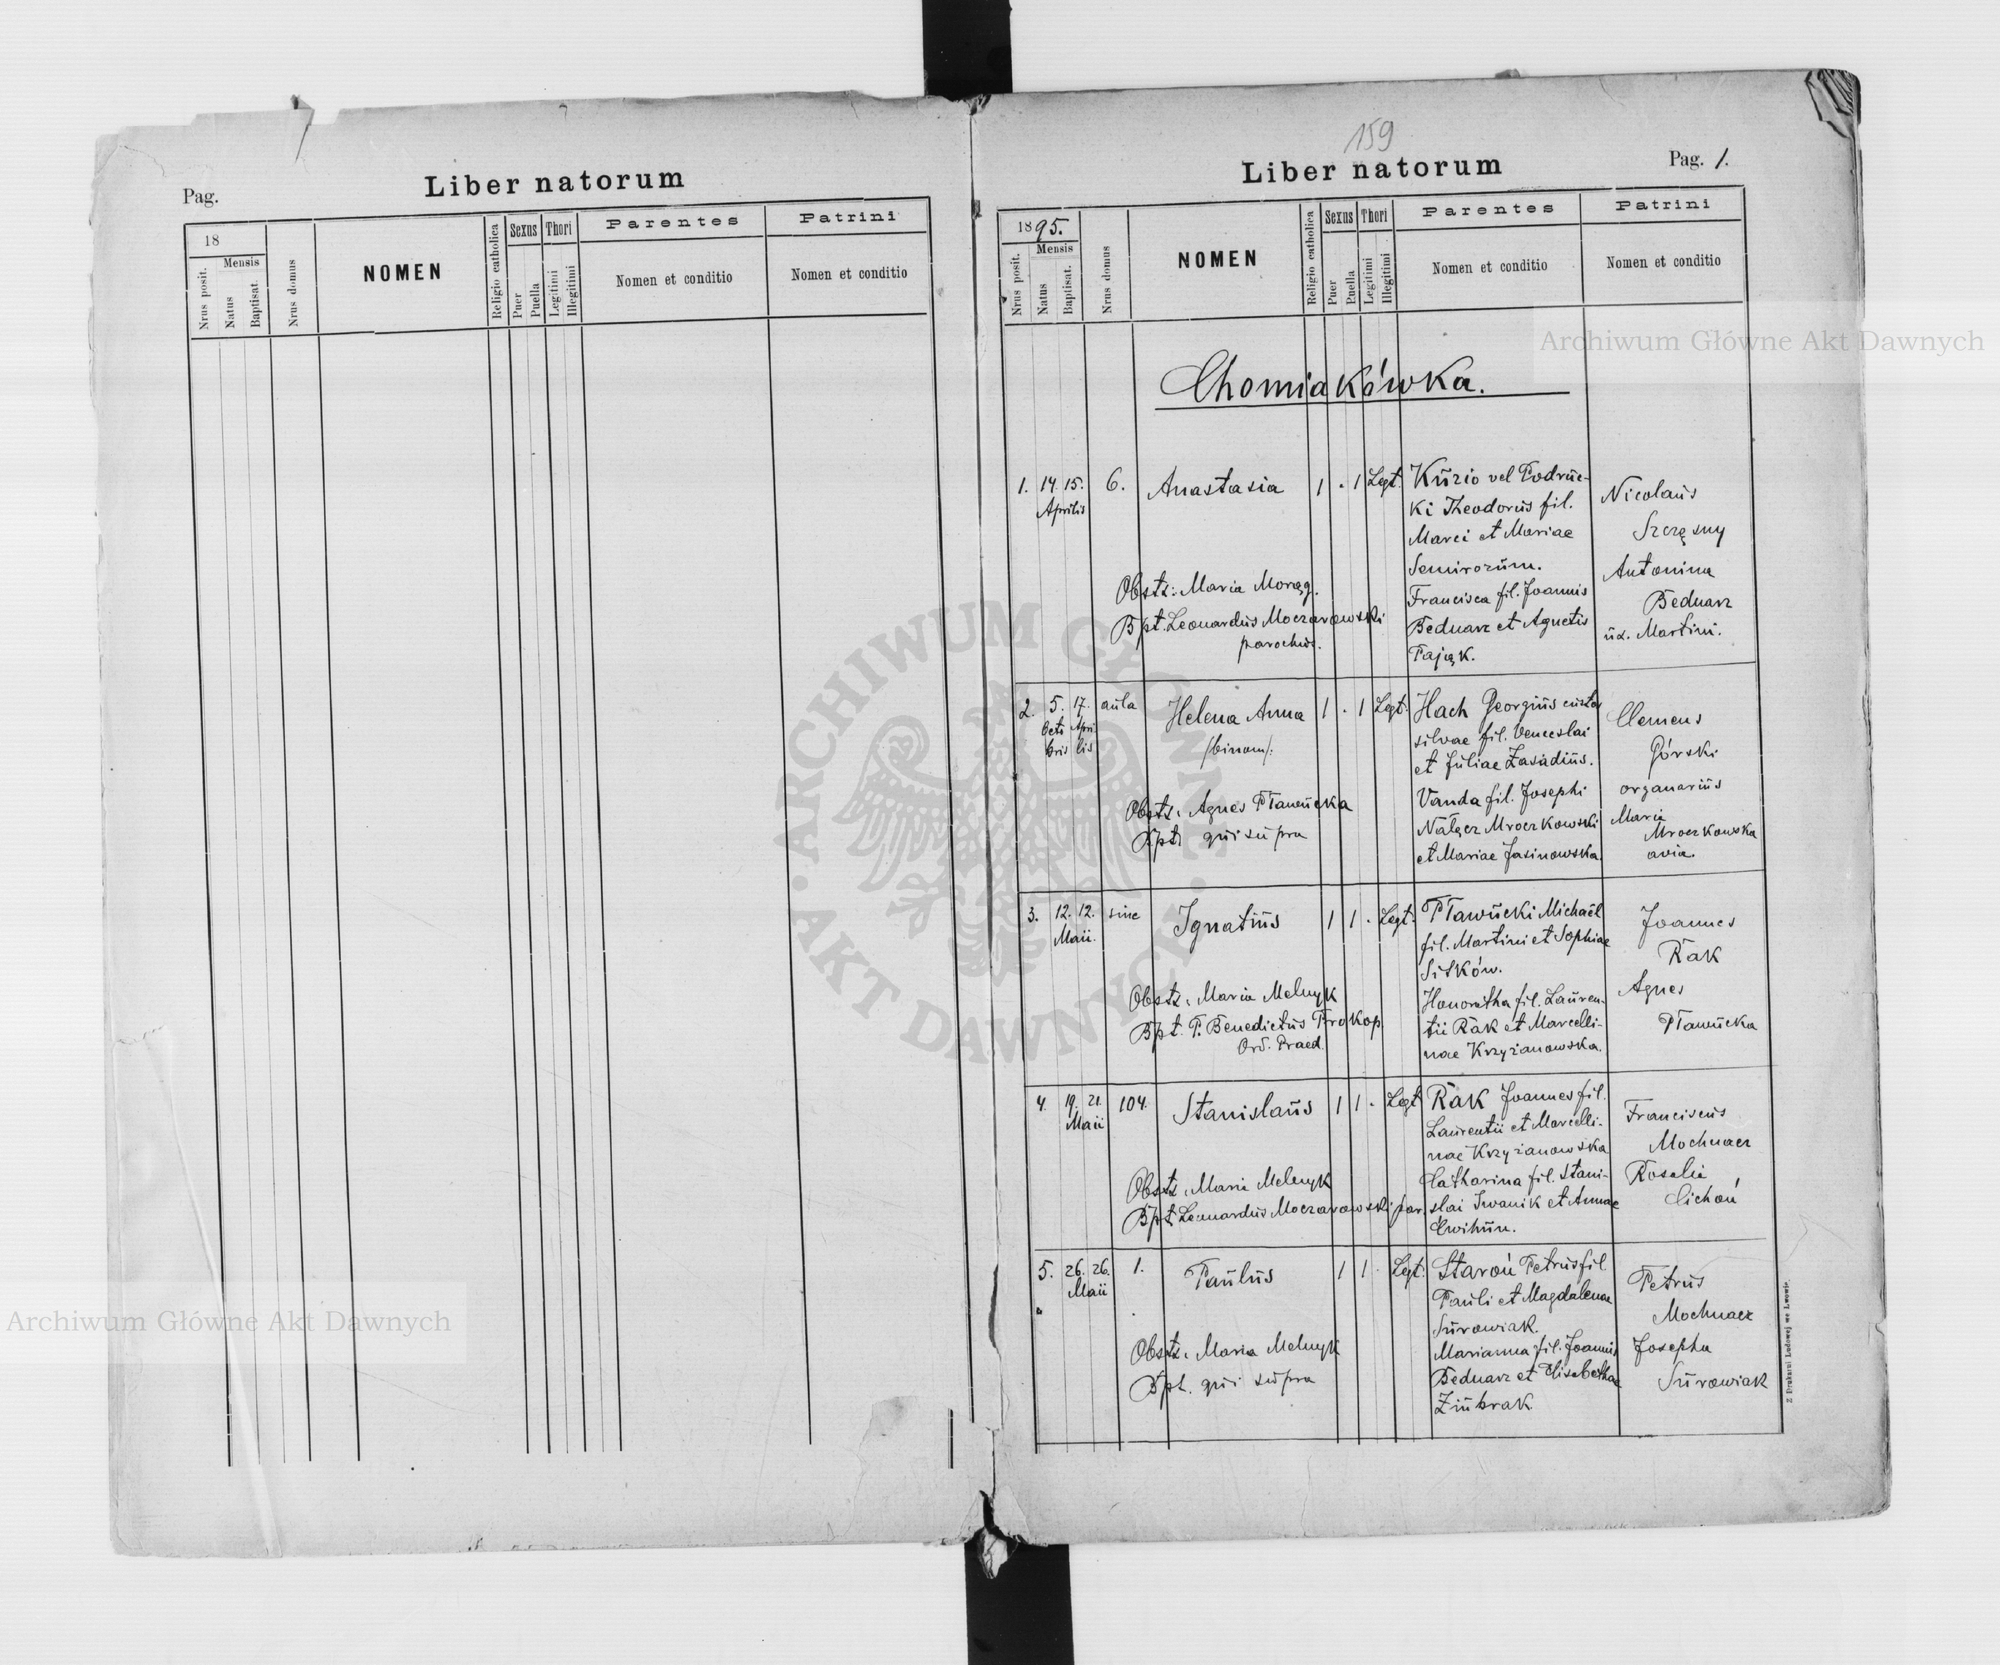 Pag.
Liber natorum
18
Mensis
Nrus posit.
Natus
Baptisat.
Nrus domus
NOMEN
Religio catholica
Sexus
Puer
Puella
Thori
Legitimi
Illegitimi
Parentes
Nomen et conditio
Patrini
Nomen et conditio
159
Liber natorum
Pag. 1.
1895.
Mensis
Nrus posit.
Natus
Baptisat.
Nrus domus
NOMEN
Religio catholica
Sexus
Puer
Puella
Thori
Legitimi
Illegitimi
Parentes
Nomen et conditio
Patrini
Nomen et conditio
Chomiakówka.
1. 14. 15. 6. Anastasia 1 . 1 Legt.
Aprilis
Obstz: Maria Morąg.
Bpt. Leonardus Moczarowski
parochus.
Kuzio vel Podruc-
ki Theodorus fil.
Marci et Mariae
Semirozum.
Francisca fil. Joannis
Bednarz et Agnetis
Pająk.
Nicolaus
Szczęsny
Antonina
Bednarz
ux. Martini.
2. 5. 17. aula Helena Anna 1 . 1 Legt.
Octo Apri
bris lis
/binom/.
Obstz. Agnes Pławucka
Bpt. qui supra
Hach Georgius custos
silvae fil. Venceslai
et Juliae Zasadius.
Vanda fil. Josephi
Nałęcz Mroczkowski
et Mariae Jasinowska.
Clemens
Górski
organarius
Maria
Mroczkowska
avia.
3. 12. 12. sine Ignatius 1 1 . Legt.
Maii.
Obstz. Maria Melnyk
Bpt. P. Benedictus Prokop.
Ord. Praed.
Pławucki Michaël
fil. Martini et Sophiae
Sitków.
Honoratha fil. Lauren-
tii Rak et Marcelli-
nae Krzyżanowska.
Joannes
Rak
Agnes
Pławucka
4. 19. 21. 104. Stanislaus 1 1 . Legt
Maii
Obstz. Maria Melnyk
Bpt. Leonardus Moczarowski par.
Rak Joannes fil.
Laurentii et Marcelli-
nae Krzyżanowska
Catharina fil. Stani-
slai Iwanik et Annae
Cwihun.
Franciscus
Mochnacz
Rosalia
Cichoń
5. 26. 26. 1. Paulus 1 1 . Legt.
Maii
Obstz. Maria Melnyk
Bpt. qui supra
Staroń Petrus fil.
Pauli et Magdalenae
Surowiak.
Marianna fil. Joannis
Bednarz et Elisabethae
Ziubrak.
Petrus
Mochnacz
Josepha
Surowiak
Z Drukarni Ludowej we Lwowie.
Archiwum Główne Akt Dawnych
Archiwum Główne Akt Dawnych
· ARCHIWUM GŁÓWNE ·
AKT DAWNYCH